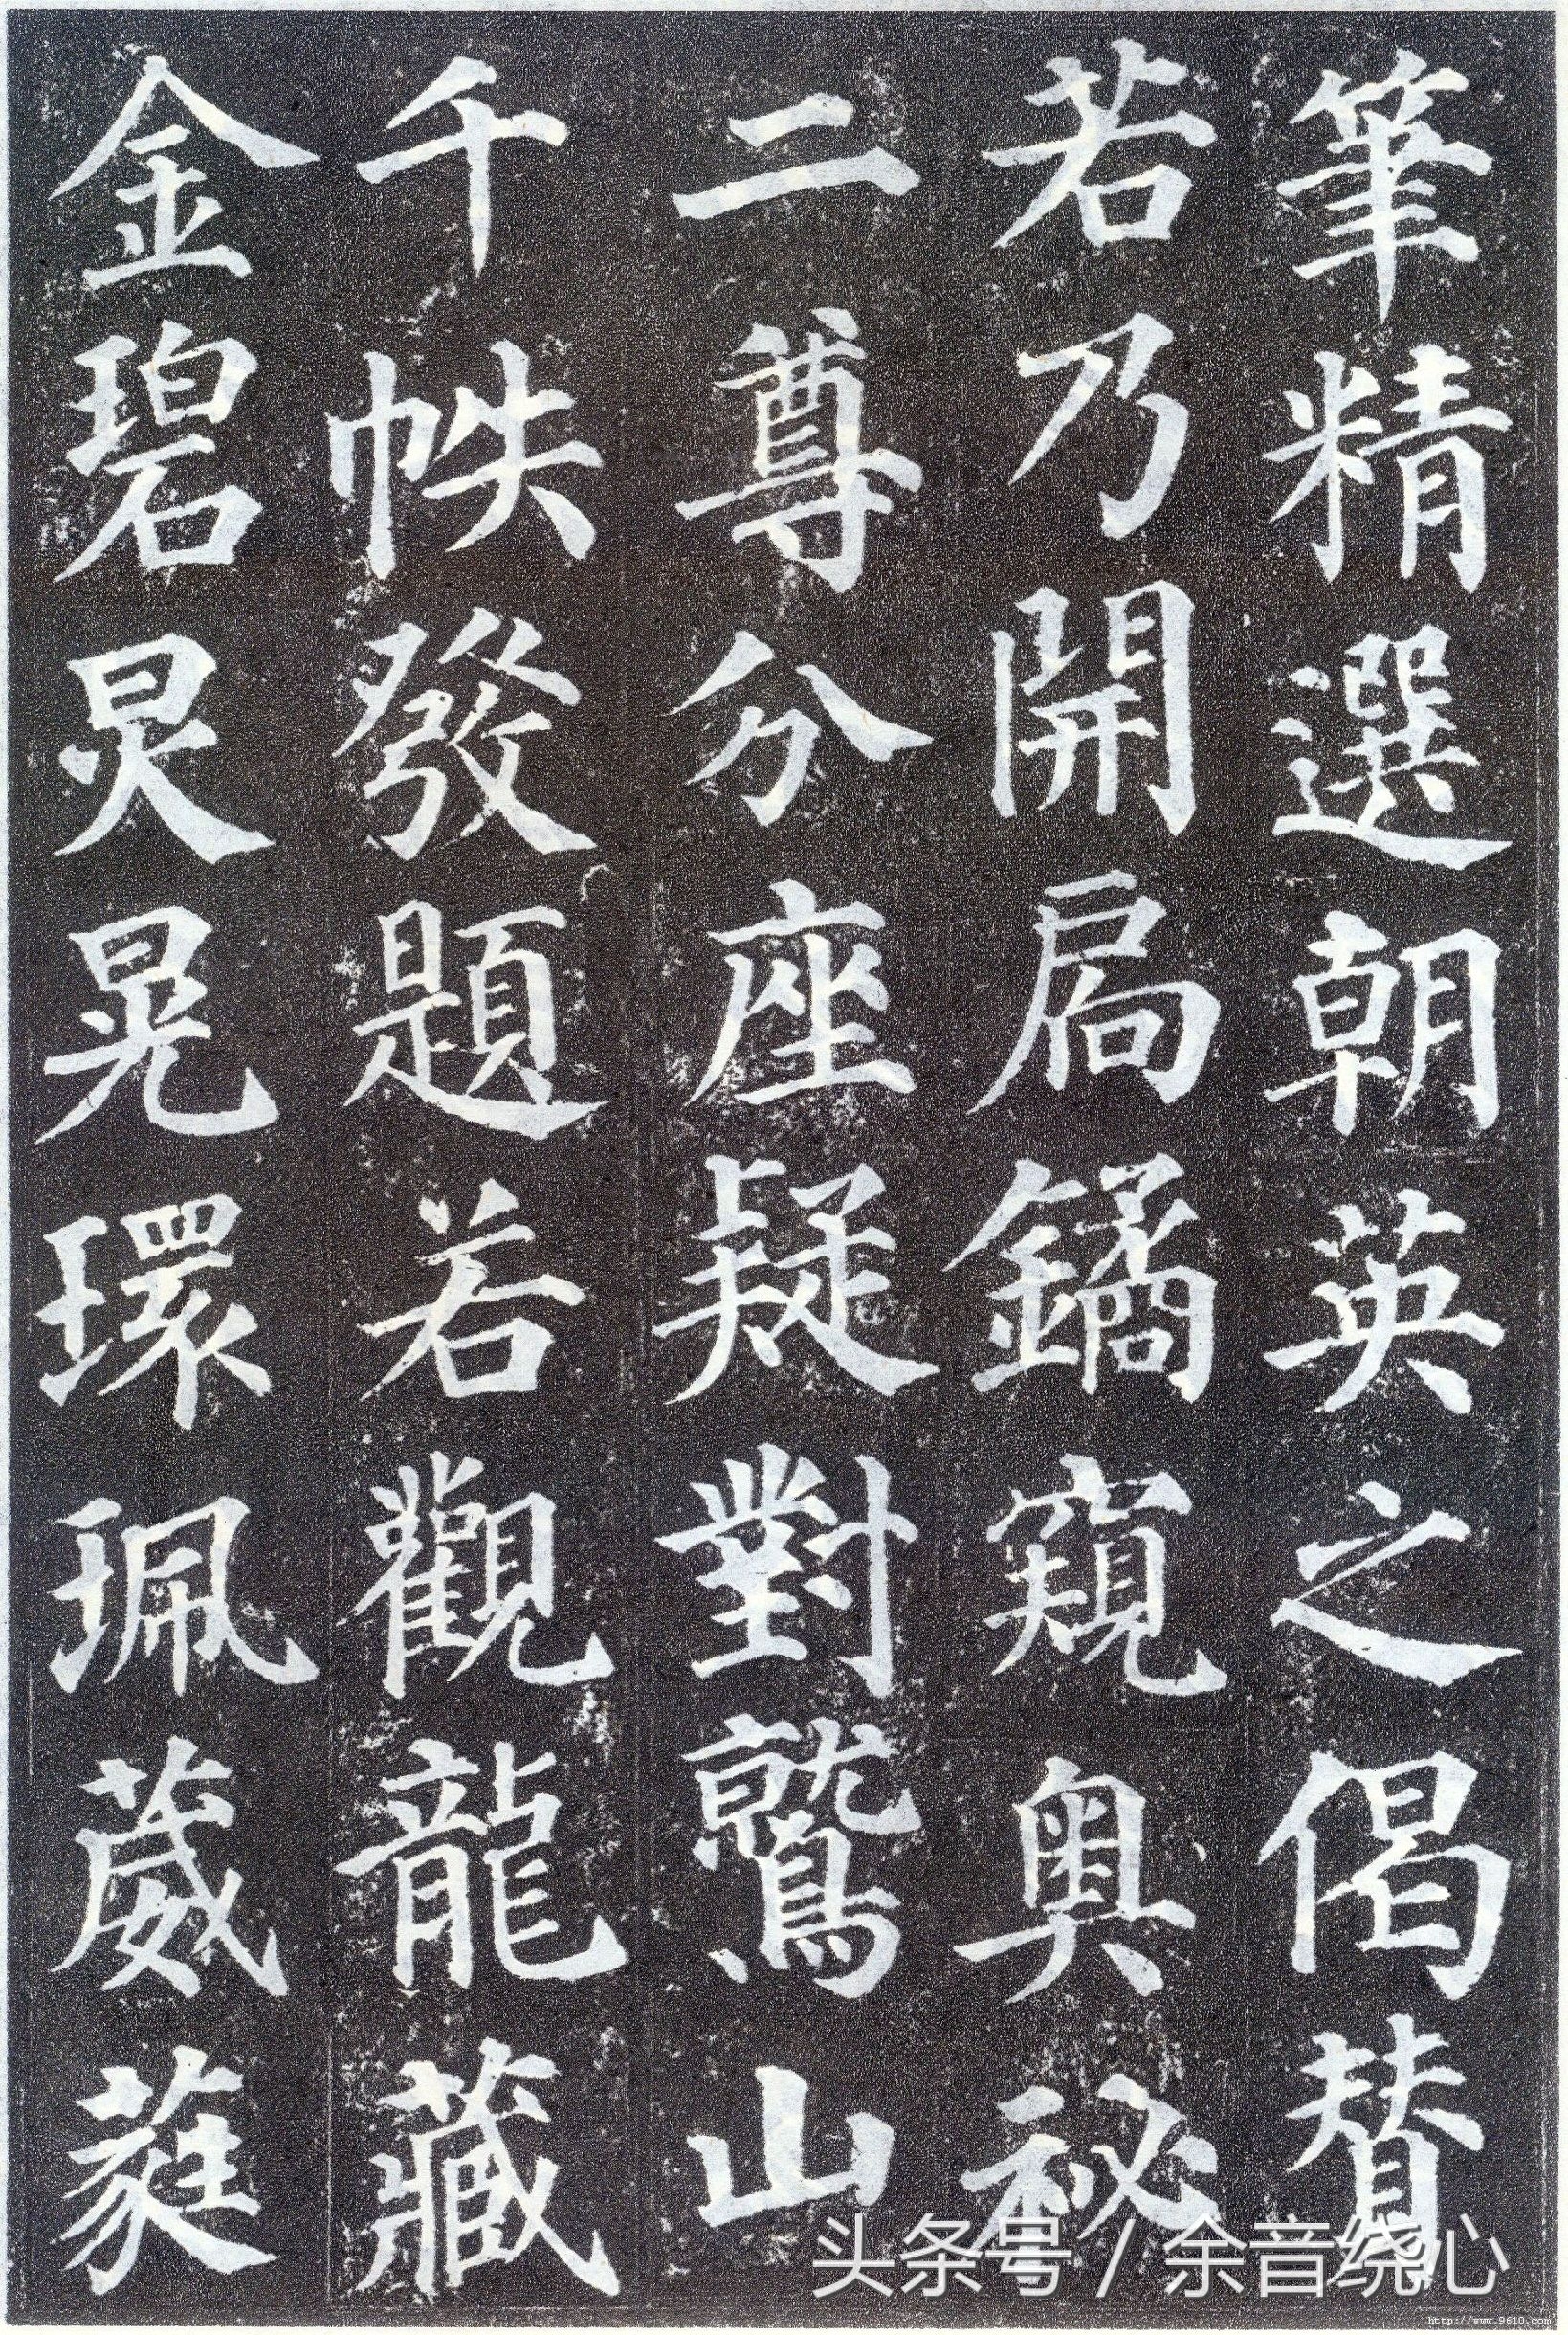 筆精選朝英之偈贊
若乃開扄鐍窺奧祕
二尊分座疑對鷲山
千帙發題若觀龍藏
金碧炅晃環珮葳蕤
头条号 / 余音绕心
http://www.9610.com